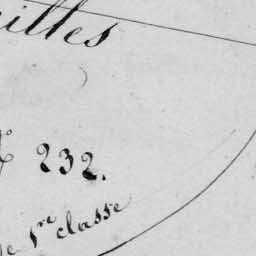 illes
N° 232.
de 1re classe